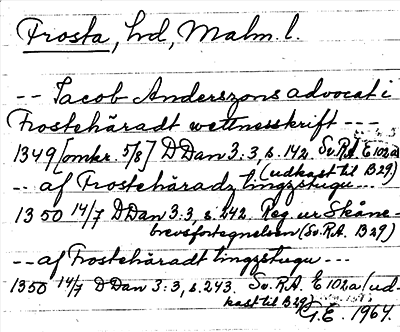 Frosta, hd, Malm. l.
-- Jacob Anderszons advocat i
Frostehäradt wettnesskrift ---
1349 [omkr. 5/8] DDan 3:3, s. 142. Sv.RA. E 102a
(udkast til B29)
-- af Frostehäradz tingzstugu ---
1350 14/7 DDan 3:3, s. 242. Reg. ur Skåne-
brevsfortegnelsen (Sv.RA. B 29)
-- af Frostehäradt tingzstugu --
1350 14/7 DDan 3:3, s. 243. Sv.RA. E 102a (ud-
kast til B29)
G.E. 1964.